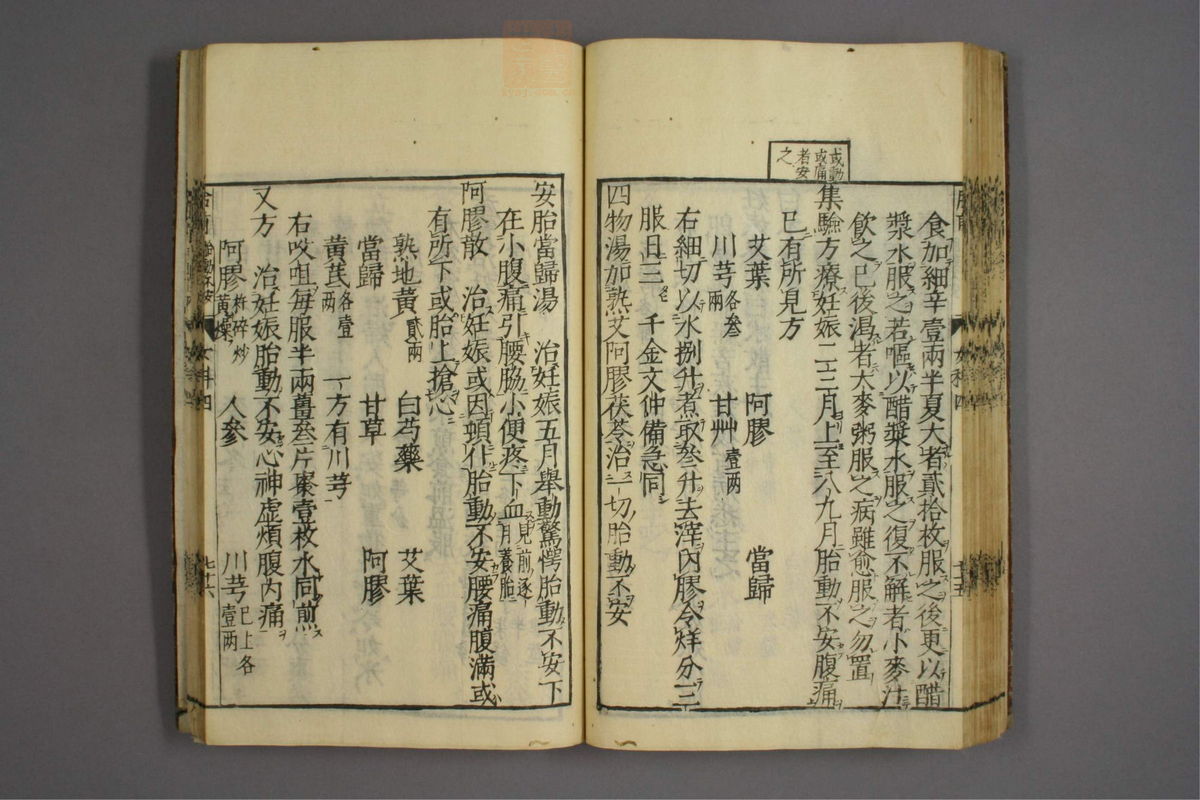 或動
或痛
者安
之
食加細辛壹兩半夏大者貳拾枚服之後更以醋
漿水服之若嘔以醋漿水服之復不解者小麥汁
飲之已後渴者大麥粥服之病雖愈服之勿置
集驗方療妊娠二三月上至八九月胎動不安腹痛
已有所見方
艾葉 阿膠 當歸
川芎各叄兩 甘艸壹兩
右細切以水捌升煮取叄升去滓內膠令烊分三
服日三 千金文仲備急同
四物湯加熟艾阿膠茯苓治一切胎動不安
安胎當歸湯 治妊娠五月舉動驚愕胎動不安下
在小腹痛引腰脇小便疼下血見前逐月養胎
阿膠散 治妊娠或因頓仆胎動不安腰痛腹滿或
有所下或胎上搶心
熟地黃貳兩 白芍藥 艾葉
當歸 甘草 阿膠
黃芪各壹兩 一方有川芎
右㕮咀每服半兩薑叄片棗壹枚水同煎
又方 治妊娠胎動不安心神虛煩腹內痛
阿膠杵碎炒黃燥 人參 川芎已上各壹兩